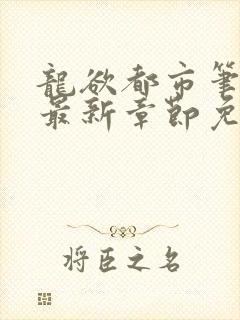 龍欲都市筆
最新章節免
将臣之名